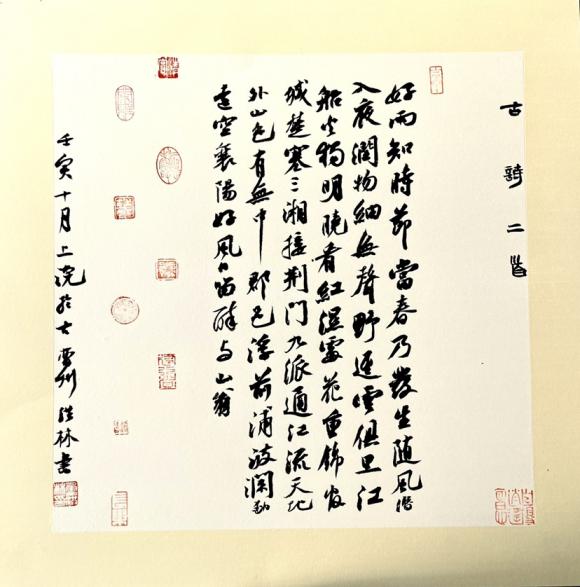 古詩二首
好雨知時節當春乃發生随風潜
入夜潤物細無聲野逕雲俱黑江
船火獨明曉看紅濕處花重錦官
城楚塞三湘接荆门九派通江流天地
外山色有無中郡邑浮前浦波瀾動
遠空襄陽好風日留醉与山翁
壬寅十月上浣於古雷州林書